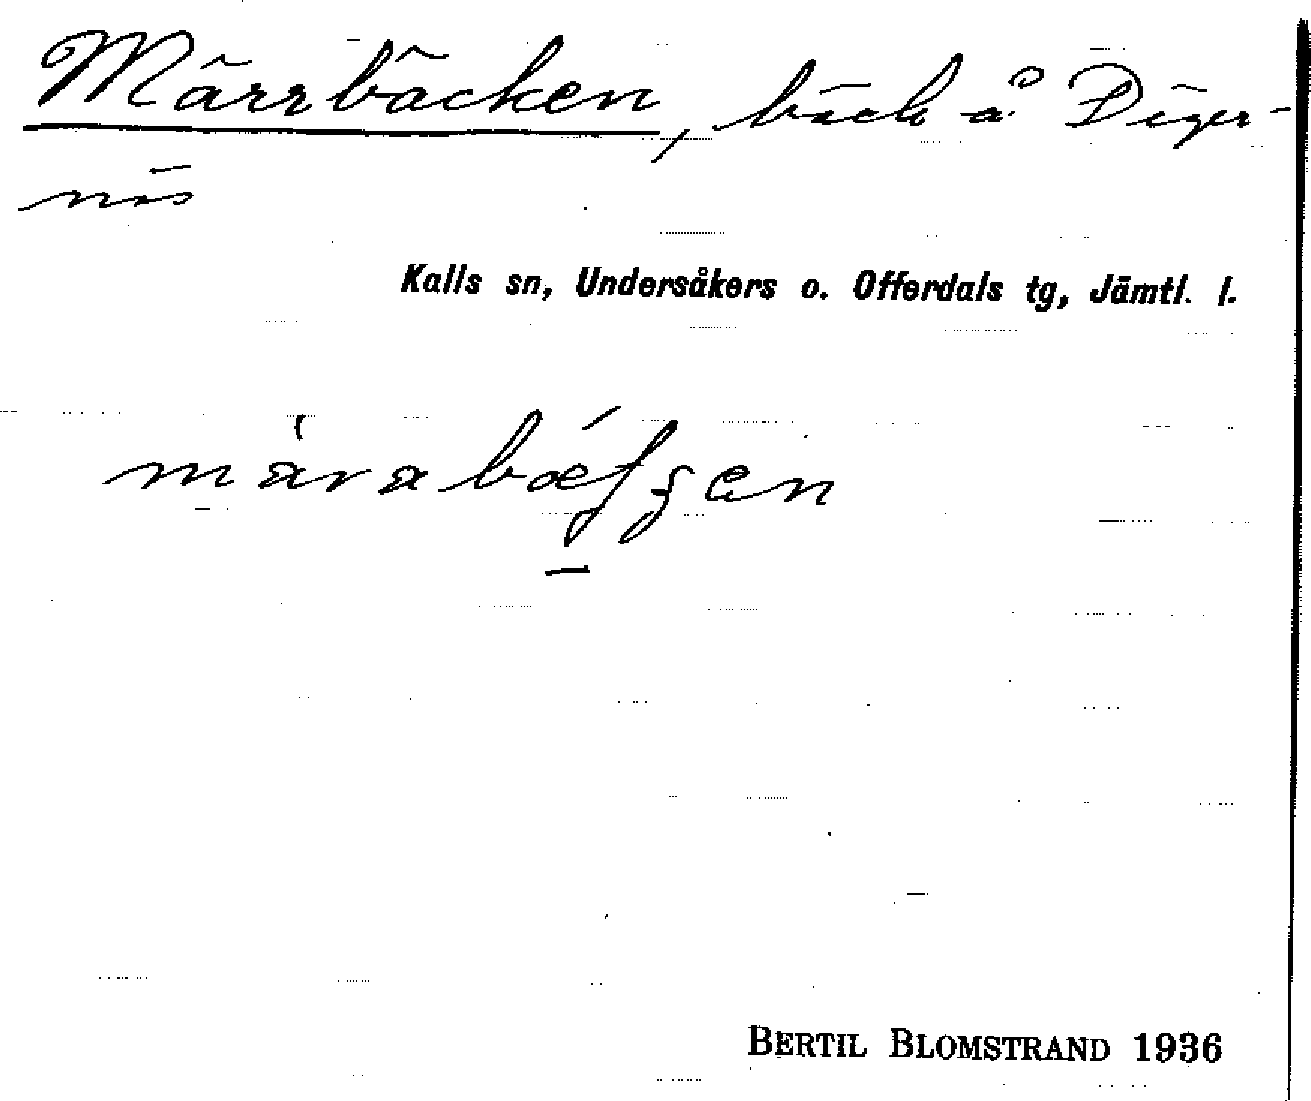 Märrbäcken, bäck å Diger-
näs
Kalls sn, Undersåkers o. Offerdals tg, Jämtl. l.
BERTIL BLOMSTRAND 1936